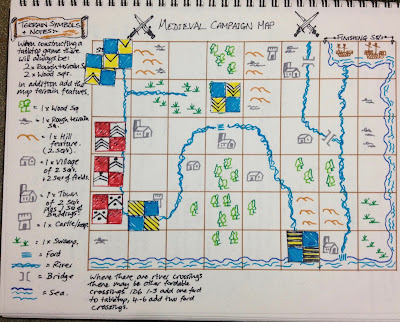 Terrain Symbols
+ Notes:-
Medieval Campaign Map
Finishing Sq's
When constructing a
tabletop game there
will always be:
2 x Rough terrain Sq
2 x Wood Sqr.
In addition add the
map terrain features.
= 1 x Wood Sq
= 1 x Rough terrain
Sq.
= 1 x Hill
feature.
(2 sqr's).
= 1 x Village
of 2 sqr's
+ 2 sqr of fields.
= 1 x Town
of 2 sqr
of Buildings.
= 1 x Castle/
= 1 x Swamp.
= Ford
= River
= Bridge
= Sea.
Where there are river crossings
There may be other fordable
crossings. 1D6 1-3 add one ford
to tabletop, 4-6 add two ford
crossings.